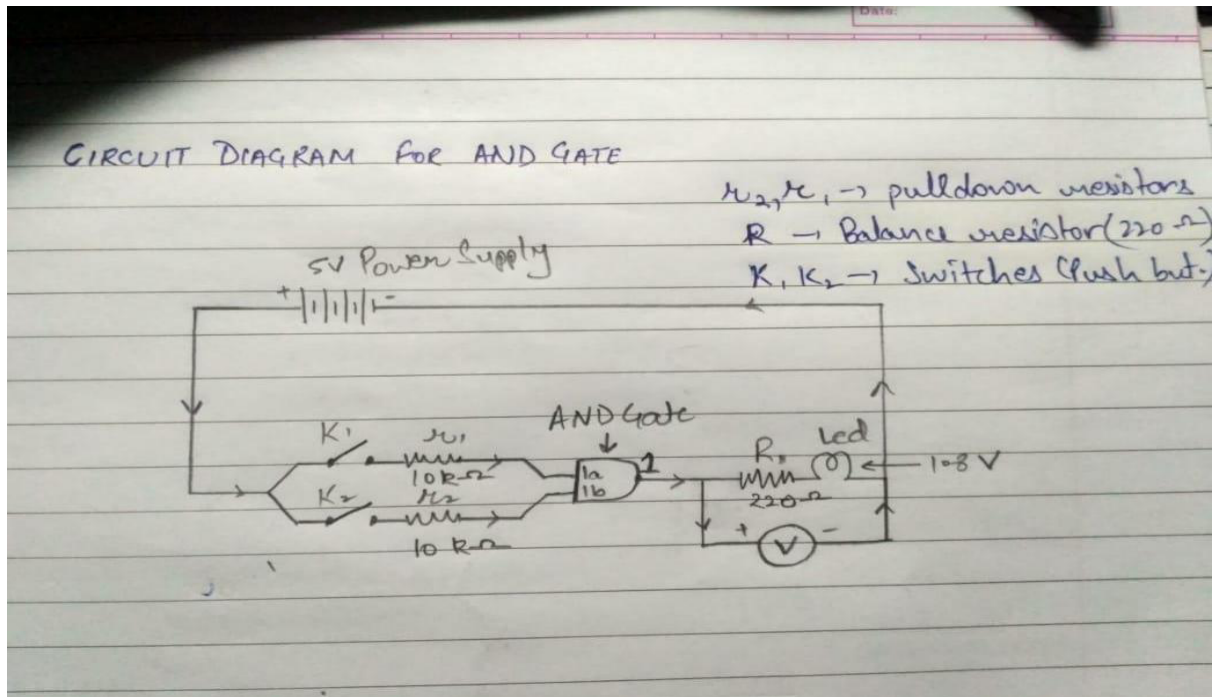 Date:
CIRCUIT DIAGRAM FOR AND GATE
r₂, r₁ → pulldown resistors
R → Balance resistor (220 Ω)
K₁ K₂ → Switches (Push but.)
5V Power Supply
+ -
K₁ r₁
10kΩ
K₂ r₂
10 kΩ
AND Gate
1a
1b
1
R Led
220Ω
1.8 V
+ V -